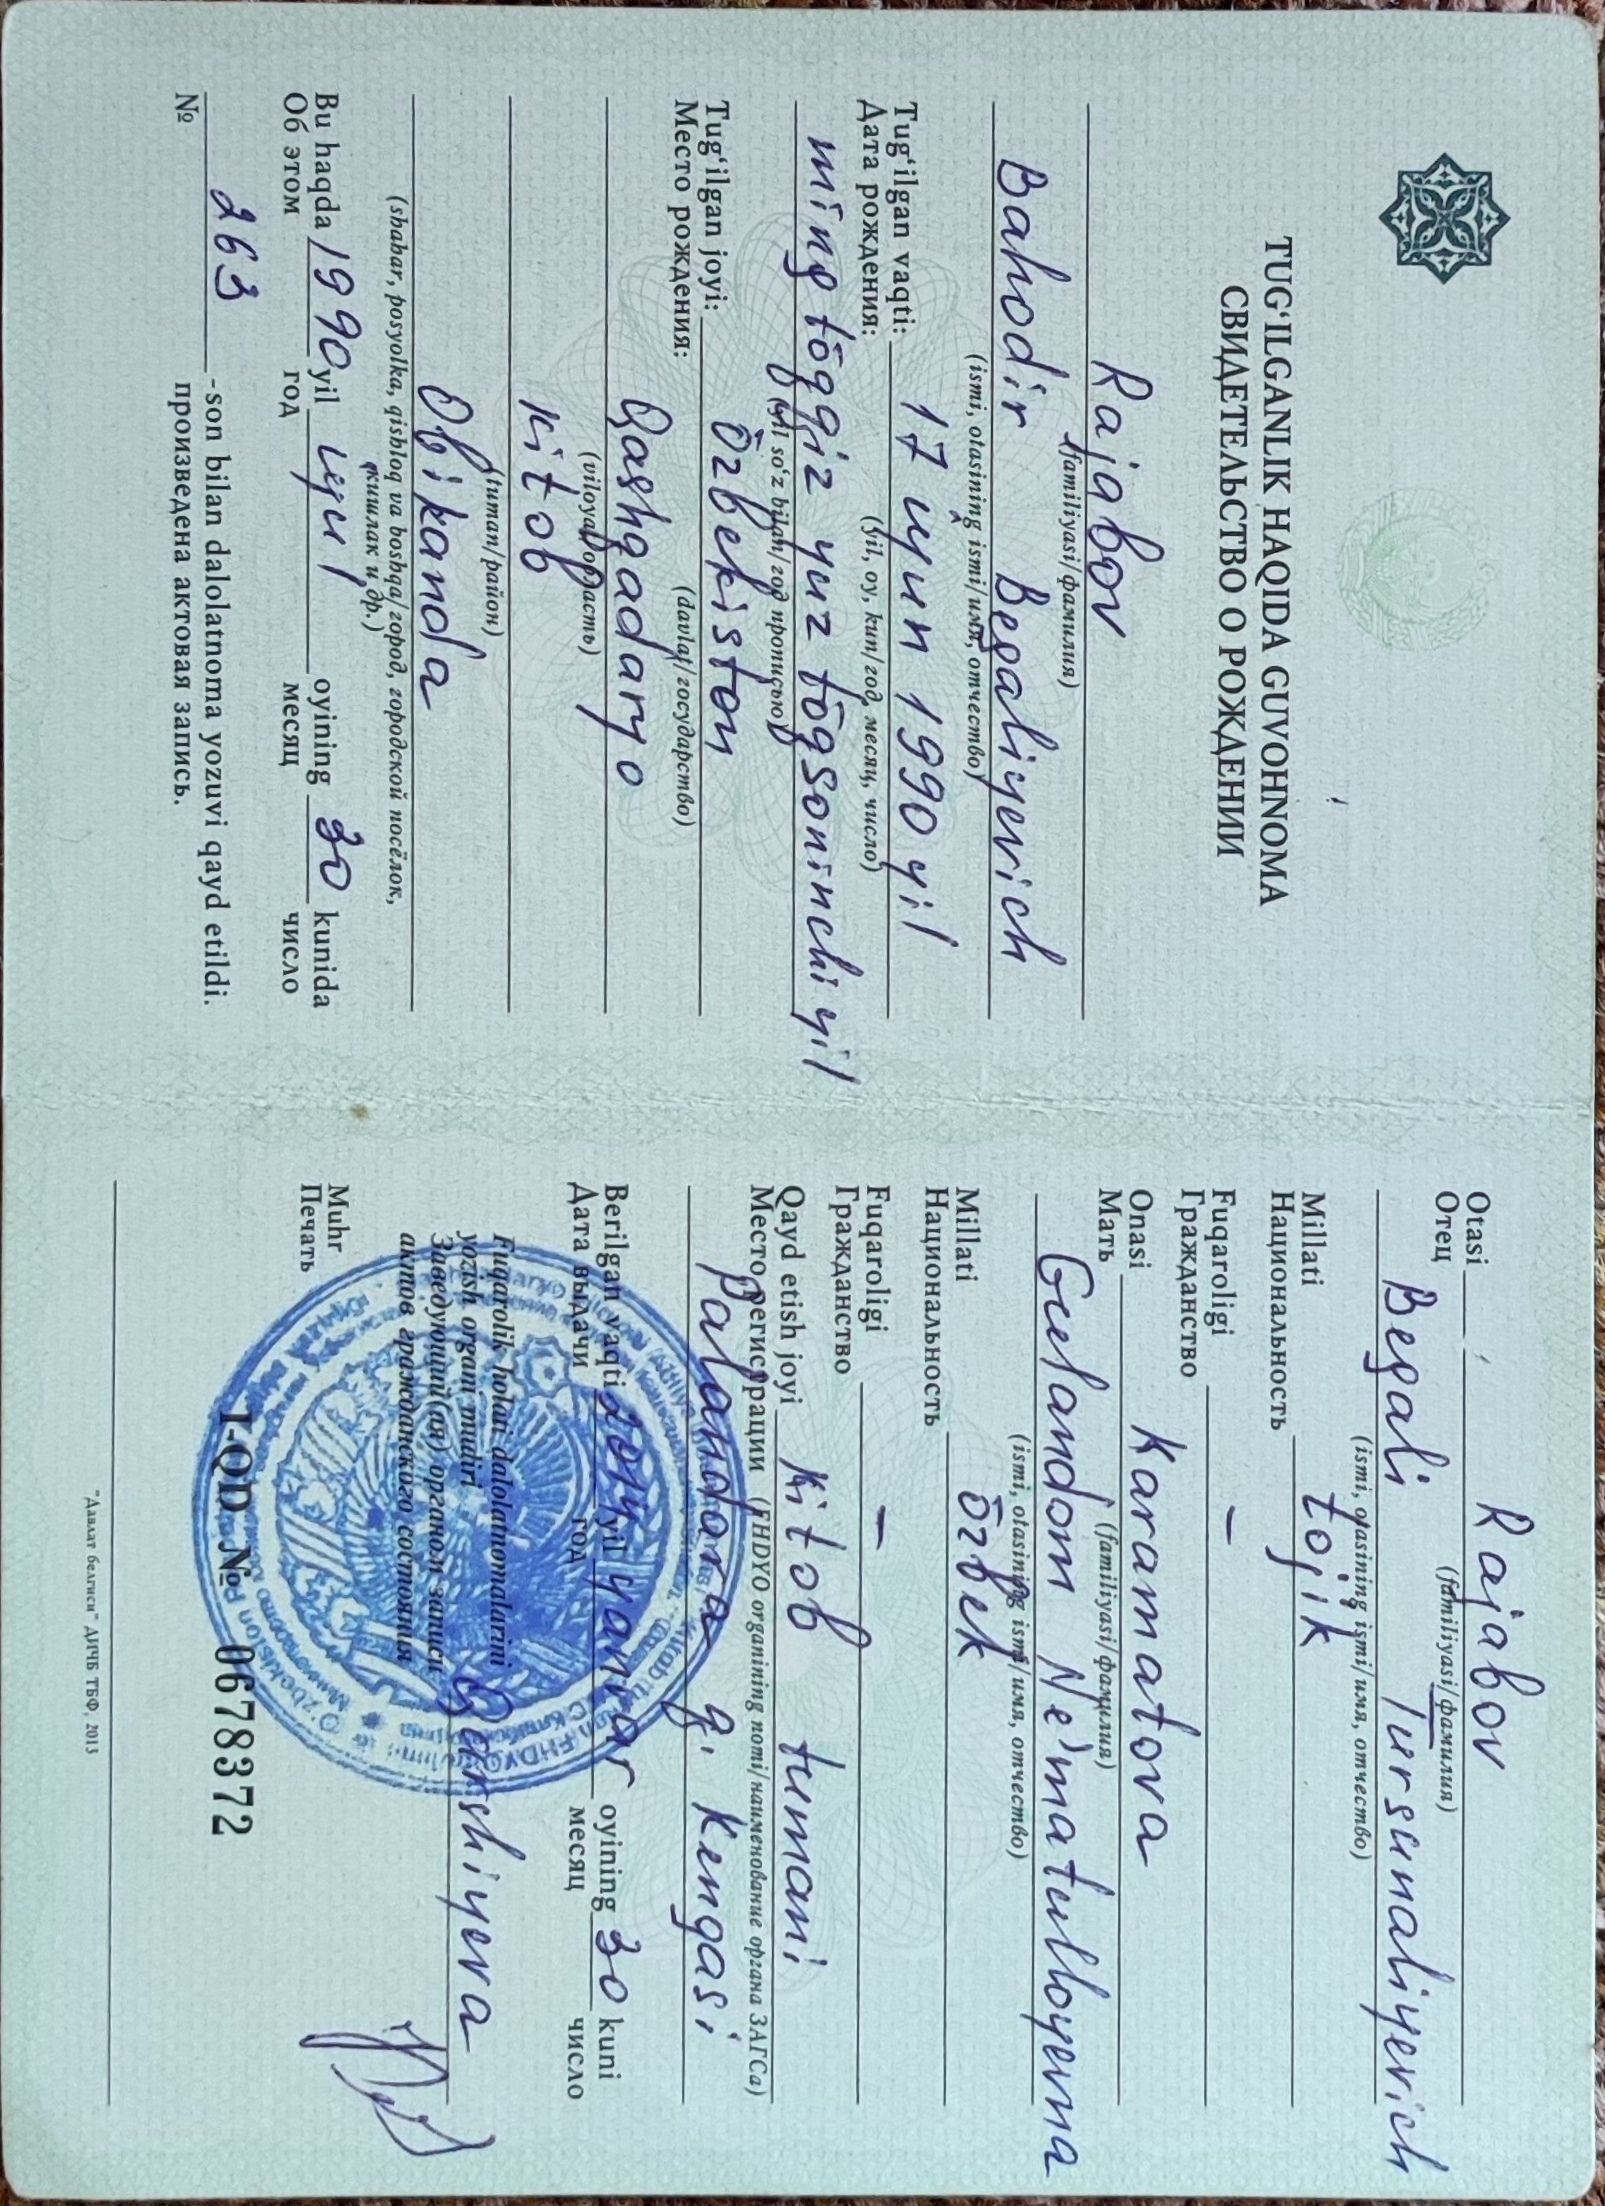 TUG‘ILGANLIK HAQIDA GUVOHNOMA
СВИДЕТЕЛЬСТВО О РОЖДЕНИИ
Rajabov
(familiyasi/фамилия)
Bahodir Begaliyevich
(ismi, otasining ismi/имя, отчество)
Tug‘ilgan vaqti: 17 iyun 1990 yil
Дата рождения:
(yil, oy, kun/год, месяц, число)
ming tõqqiz yuz tõqsoninchi yil
(yil so‘z bilan/год прописью)
Tug‘ilgan joyi: Õzbekiston
Место рождения:
(davlat/государство)
Qashqadaryo
(viloyat/область)
Kitob
(tuman/район)
Obikanda
(shahar, posyolka, qishloq va boshqa/город, городской посёлок,
кишлак и др.)
Bu haqda 1990 yil iyul oyining 30 kunida
Об этом год месяц число
№ 263 -son bilan dalolatnoma yozuvi qayd etildi.
произведена актовая запись.
Otasi Rajabov
Отец
(familiyasi/фамилия)
Begali Tursunaliyevich
(ismi, otasining ismi/имя, отчество)
Millati tojik
Национальность
Fuqaroligi –
Гражданство
Onasi Karamatova
Мать
(familiyasi/фамилия)
Gulandom Ne'matulloyevna
(ismi, otasining ismi/имя, отчество)
Millati õzbek
Национальность
Fuqaroligi –
Гражданство
Qayd etish joyi Kitob tumani
Место регистрации (FHDYO organining nomi/наименование органа ЗАГСа)
Palandara q. Kengasi
Berilgan vaqti yil yanvar oyining 30 kuni
Дата выдачи год месяц число
Fuqarolik holati dalolatnomalarini
yozish organi mudiri
Заведующий(ая) органом записи
актов гражданского состояния
Muhr
Печать
I-QD № 0678372
"Давлат белгиси" ДИЧБ ТБФ, 2013